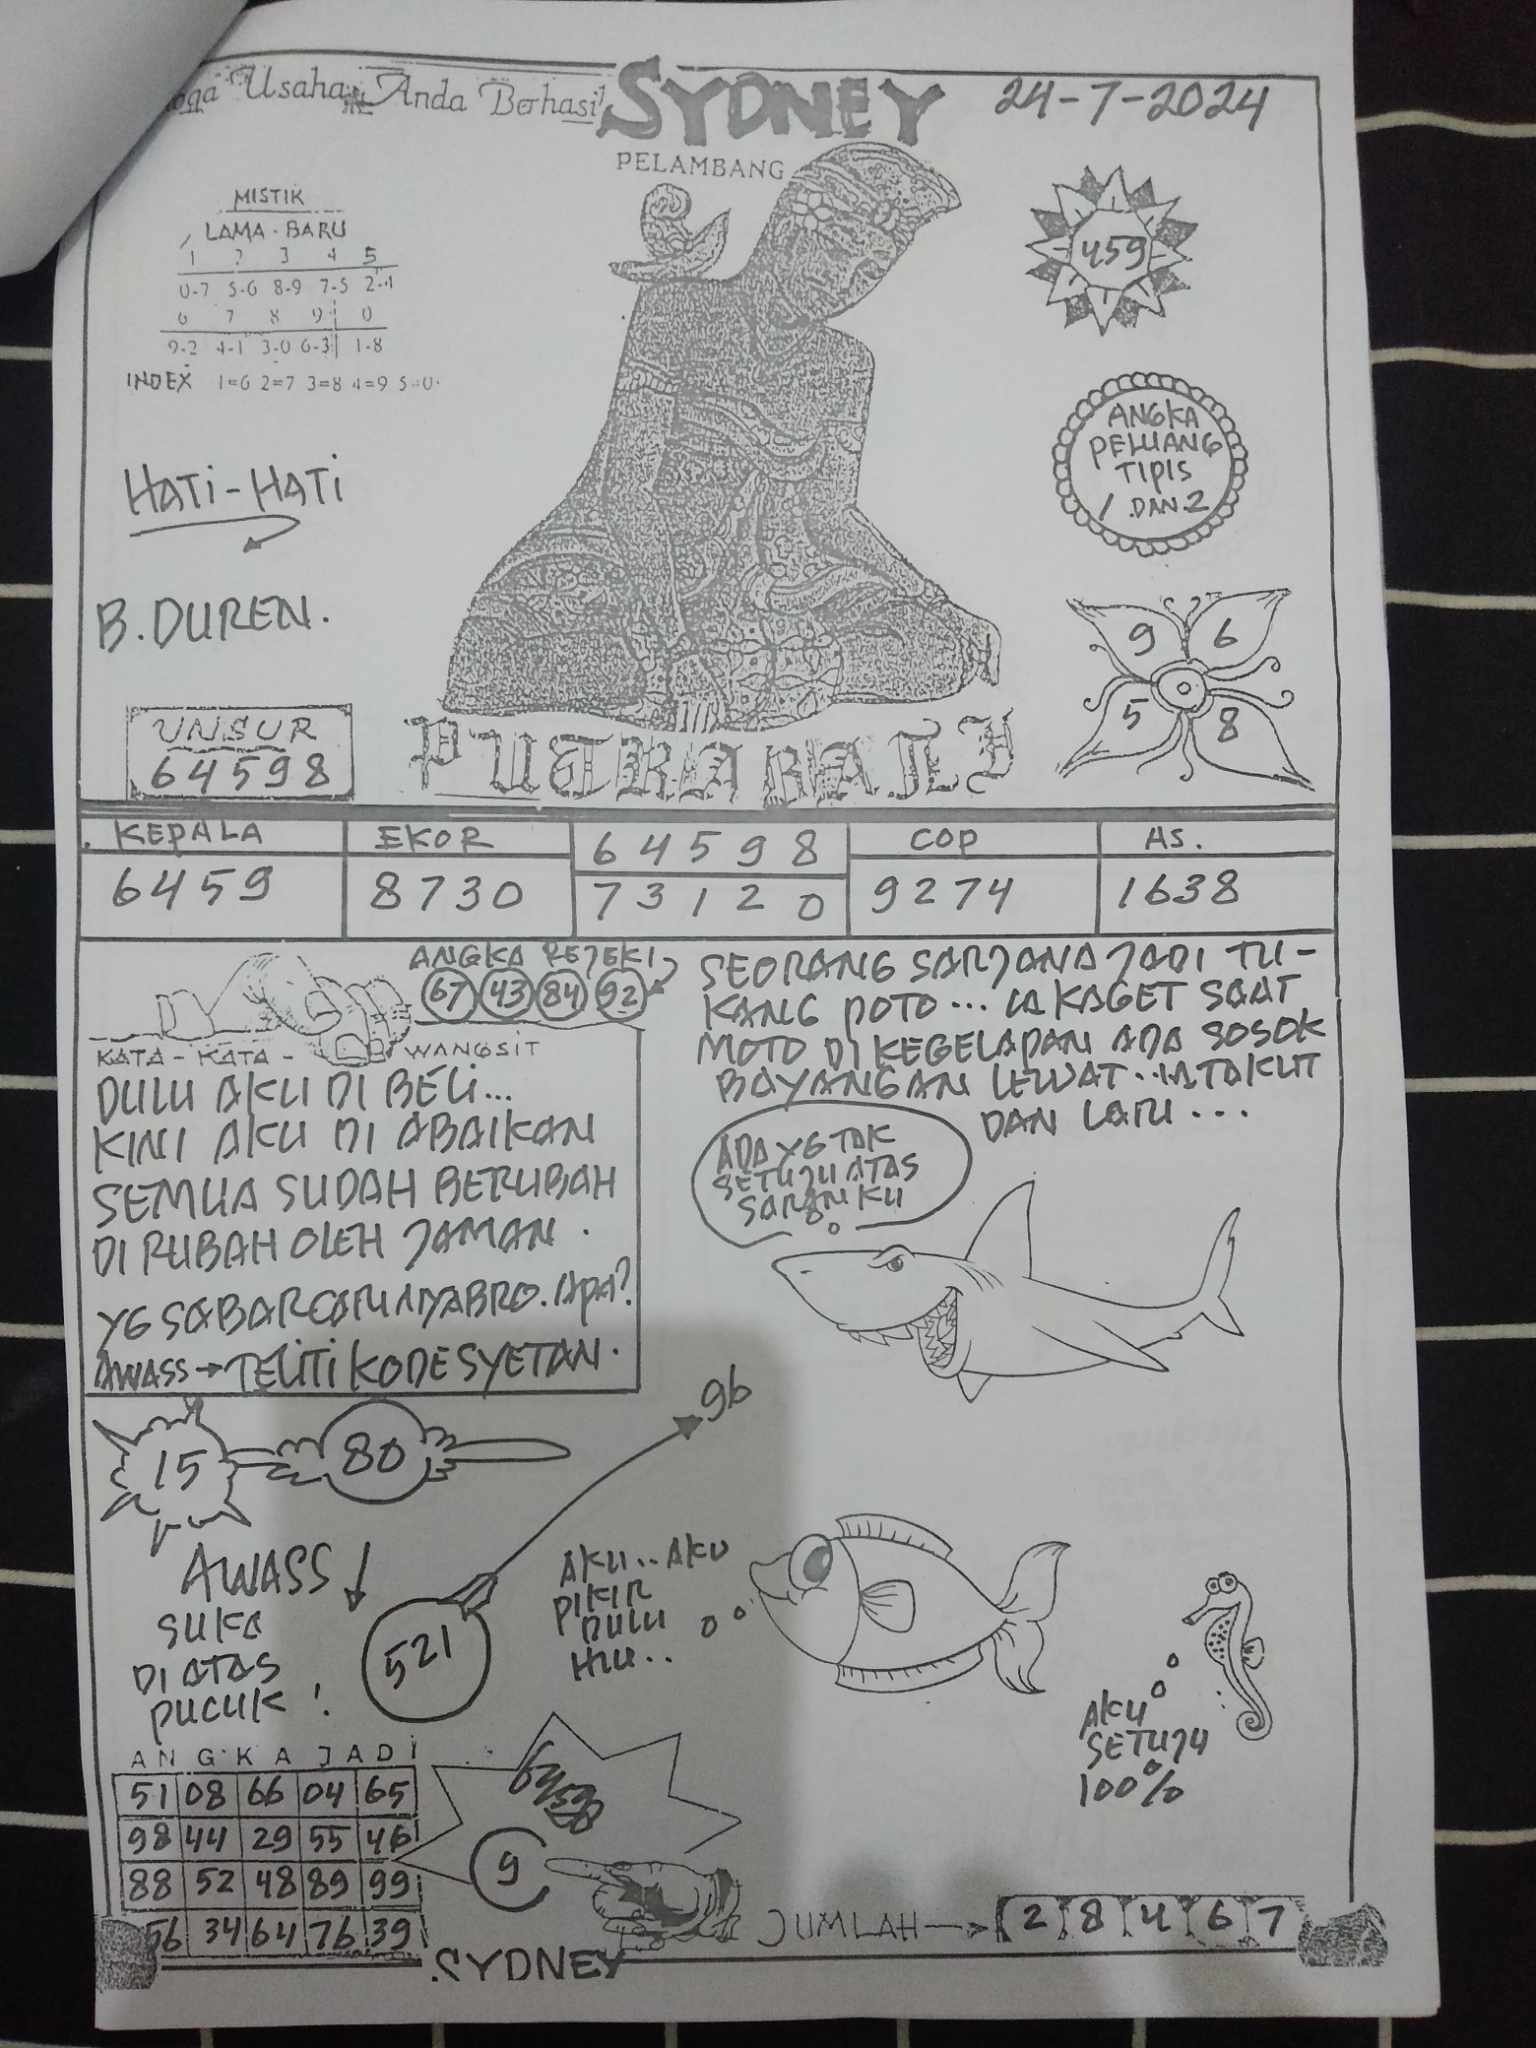 Usaha Anda Berhasil
SYDNEY
24-7-2024
PELAMBANG
MISTIK
LAMA - BARU
1 2 3 4 5
0-7 5-6 8-9 7-5 2-4
6 7 8 9 0
9-2 4-1 3-0 6-3 1-8
INDEX 1=6 2=7 3=8 4=9 5=0
459
ANGKA
PELUANG
TIPIS
1 DAN 2
HATI-HATI
B. DUREN.
9 6
5 8
UNSUR
64598
PUTRA BALI
KEPALA EKOR 64598 COP AS.
6459 8730 73120 9274 1638
ANGKA REJEKI
67 43 84 92
KATA-KATA- WANGSIT
DULU AKU DI BELI...
KINI AKU DI ABAIKAN
SEMUA SUDAH BERUBAH
DI RUBAH OLEH JAMAN.
YG SABAR CARINYA BRO. APA?
AWASS → TELITI KODE SYETAN.
SEORANG SARJANA JADI TU-
KANG POTO... IA KAGET SAAT
MOTO DI KEGELAPAN ADA SOSOK
BAYANGAN LEWAT.. IA TAKUT
DAN LARI...
ADA YG TAK
SETUJU ATAS
SARAN KU
15 80
96
AWASS
SUKA
DI ATAS
PUCUK!
521
AKU.. AKU
PIKIR
DULU
HIU..
AKU
SETUJU
100%
ANGKA JADI
51 08 66 04 65
98 44 29 55 46
88 52 48 89 99
56 34 64 76 39
9
JUMLAH → 2 8 4 6 7
SYDNEY